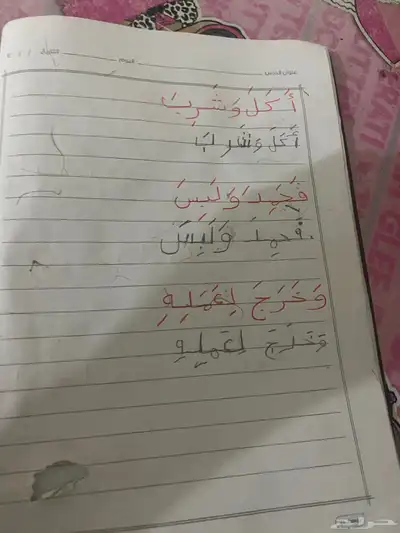 عنوان الدرس
اليوم
أَكَلَ وَشَرِبَ
أَكَلَ وَشَرِبَ
فَحَمِدَ وَلَبِسَ
فَحَمِدَ وَلَبِسَ
وَخَرَجَ لِعَمَلِهِ
وَخَرَجَ لِعَمَلِهِ
حراج